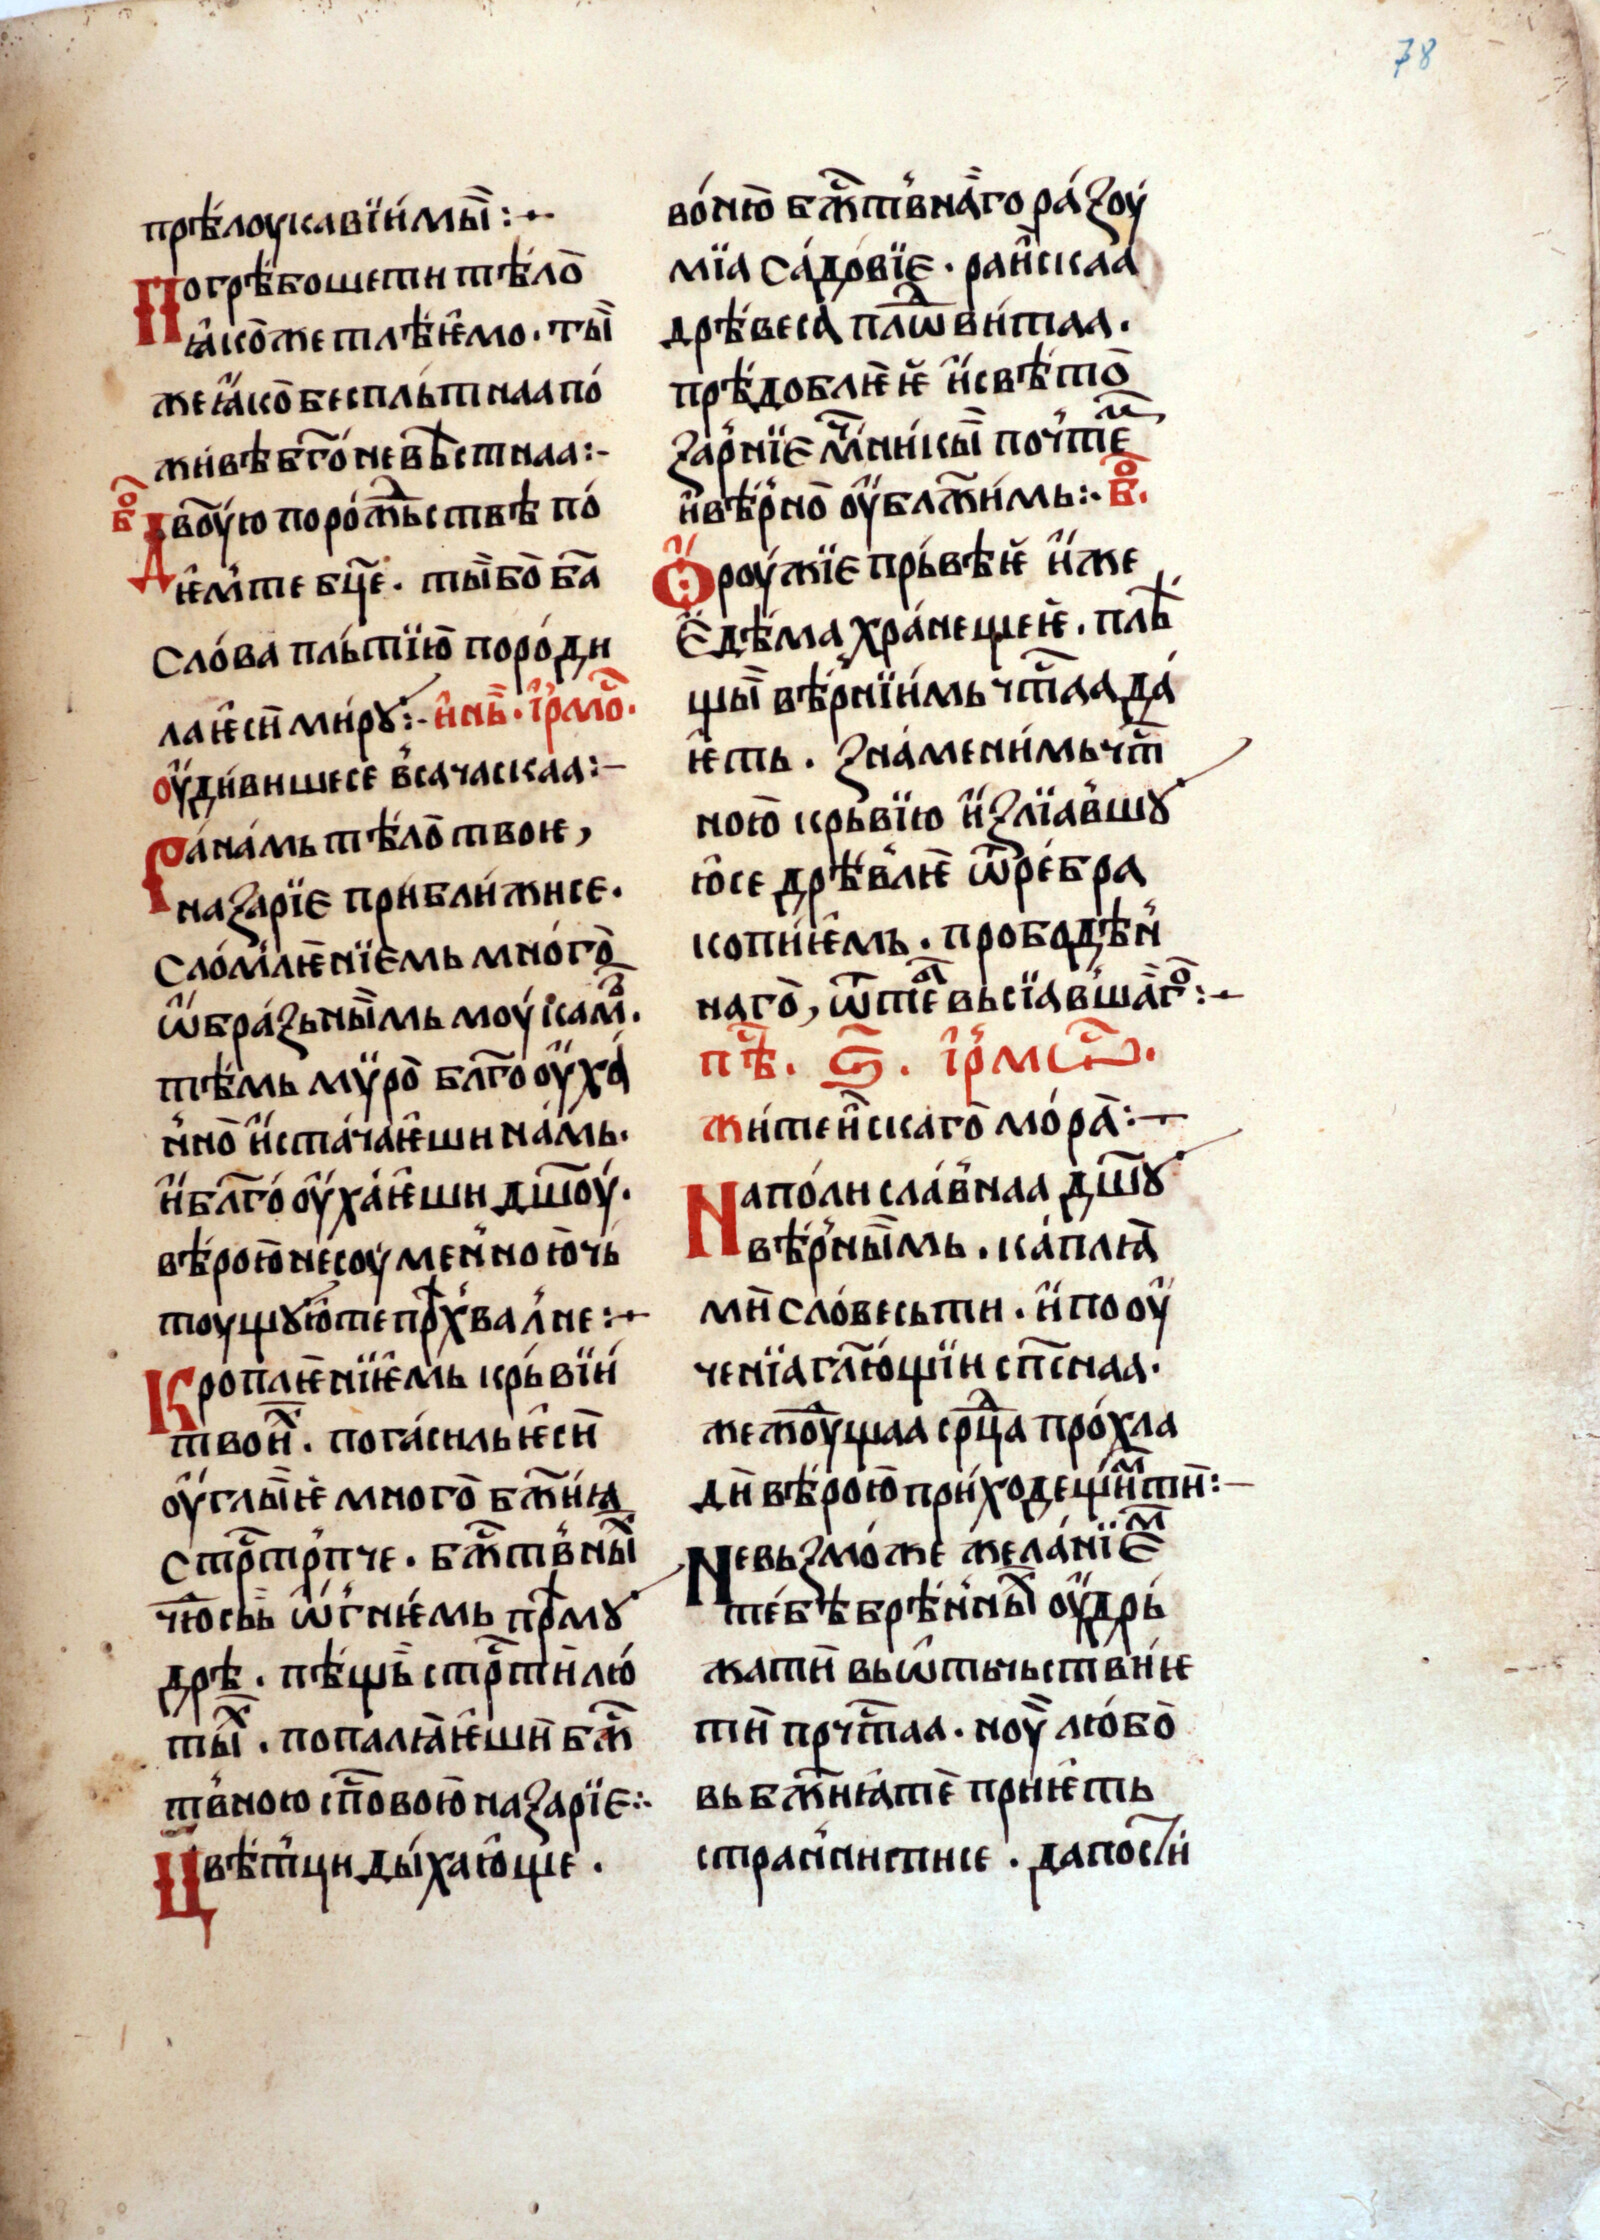 78
прѣ́лоукавїи́мы̏ :·–
Погрѣ́бошети тѣ́ло̀
ꙗ҆́ко̀жетлѣ́ѥ҆мо . ты̏
жеꙗ҆́ко̀бесплъ́тнаапо́
жи́вѣ бг҃о́невѣ́стнаа:–
бѡ҃
Дво̀ую поро́ж҃ьствѣ по́
ѥ҆м҃те бц҃е . ты̏бо̀ б҃а
сло́ва плъ́тїю̀ поро́ди
лаѥ҆сѝ ми́рꙋ:· и҆нь̏ . і҆рмо̑.
оу҆ди́вишесе в҆сачаскаа:–
Ра́на́мь тѣ́ло̀ твоѥ ,
назарїє при́бли́жисе .
Сло́м҆лѥ̀нїємь мно́го̀
ѡ҆бра́зьны̏мь моу́кам̑ .
тѣ́мь мѵ́ро̀ бл҃гооу҆ха́
н҆но̀ и҆ста́чаѥ҆ши на́мь.
и҆бл҃го́оу҆ха́ѥ҆ши дш҃оу́.
вѣ́рою̀несоуме́н҆ноючь̀
тоущꙋю҆те прⷣх҆ва́л҆не :·–
Кроплѥ̀нїѥ҆мь крь́вїи́
твоѝⷯ . пога́силь ѥ҆сѝ
оу҆глы̏ѥ много̀ бж҃и́ꙗ
стрⷭ҇тръ̑пче . бж҃тв҆ны̏ⷯ
чю҃сьь̏ ѡ҆г҆нѥ́мь прѣ̑мꙋ
дрѣ . пѣ́щь̏ стрⷭ҇тѝлю́
ты̏ⷯ . попалꙗ̀ѥ҆шѝ бж҃
тв҆ною сп҃овою̀назарїє:·
Цвѣ́т҆ци ды́хаю҆ще .
во́ню̀ бж҃тв҆на̏го ра́зоу́
мїа са́до́вїє . ра́и҆скаа
дрѣ́веса̀ плⷣѡви́таа .
прѣ́доблѥ̀ѥ̏ и҆свѣ́то̀
зар҆нїє мч҃ни́кы̏ поч҆те̑ⷨ
и҆вѣ́р҆но̀ оу҆бл҃жи́мь:· бѡ҃.
Ѻ҆роу́жїє прь́вѣѥ̏ и҆же
є҆дѣ́ма хра́нещеѥ̀ . плъ̑
щы̏ вѣ́р҆нїи́мь чт҃аа да́
ѥ҆ть . зна́мени́мь чт҃
ною̀ крь́вїю и҆злїав҆шꙋ
ю҆се дрѣ́в҆лѥ̀ ѿре́бра
копи́ѥ҆мь . прободѣ́н҆
наго̀ , ѿте̑ⷧ вьсїав҆ша̏гѡ̑:·–
пѣ̑ . ѕ҃ . і҆рмос̑ .
жи́теи҆скаго̀ мо́ра̀ :·–
Напо́ли сла́в҆наа дш҃ꙋ
вѣ́р҆ны̏мь . ка́плꙗ̀
мѝ сло́весьти . и҆поу҆
ченїагл҃ю́щїи сп҃снаа .
жежо̑ущаа срⷣца про́хла
дѝ вѣ́рою̀ при́ходещи́ⷨтѝ:–
Невьзмо́же жела́нїє̑ⷨ
те́бѣ брѣ́н҆ны̏ⷯ оу҆дрь́
жатѝ вьѡ҆тьчьстви́ѥ
тѝ прчⷭ҇таа . ноу̏ лю́бо̀
вь бж҃иꙗ҆тѐ приѥ҆ть
стран҆ни́ствисе . дапости́